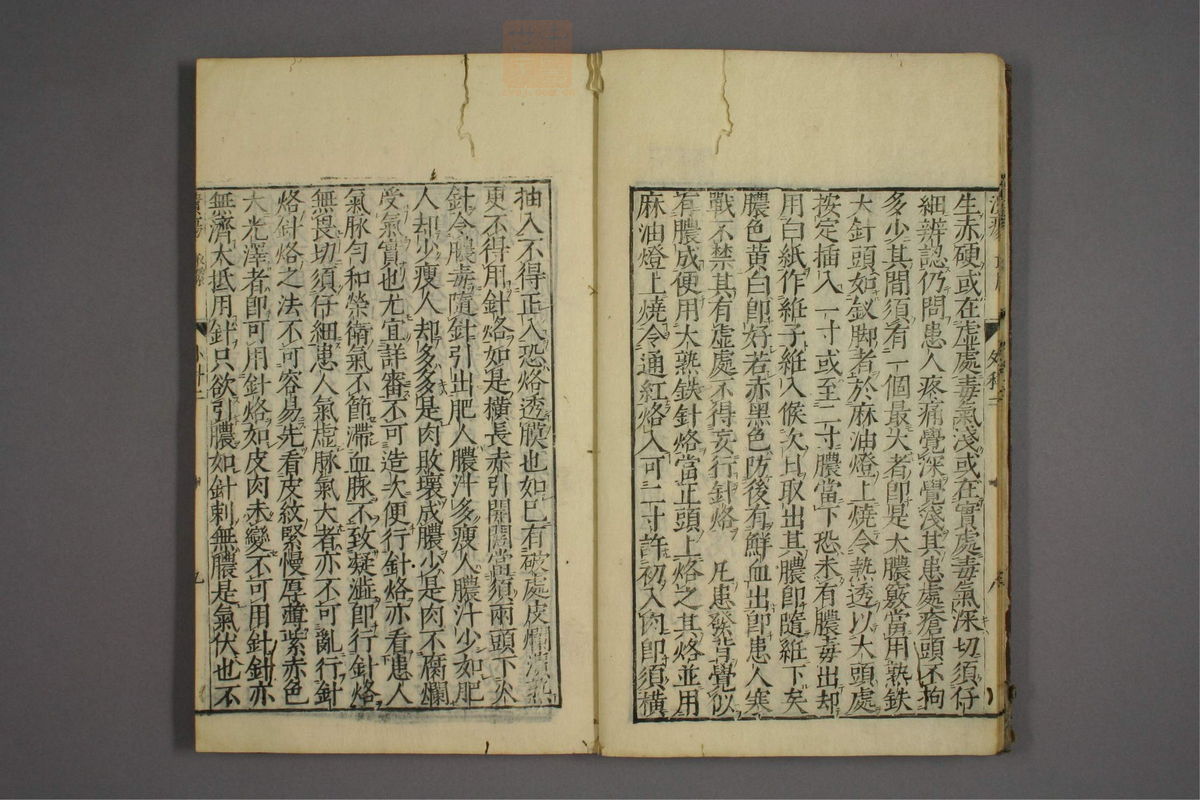 生赤硬或在虛處毒氣淺或在實處毒氣深切須仔
細辨認仍問患人疼痛覺深覺淺其患處瘡頭不拘
多少其間須有一個最大者即是大膿竅當用熟鉄
大針頭如釵脚者於麻油燈上燒令熱透以大頭處
按定插入一寸或至二寸膿當下恐未有膿毒出却
用白紙作紙子絍入候次日取出其膿即隨絍下矣
膿色黄白即好若赤黑色防後有鮮血出即患人寒
戰不禁其有虛處不得妄行針烙 凡患發背覺似
有膿成便用大熟鉄針烙當正頭上烙之其烙並用
麻油燈上燒令通紅烙入可二寸許初入肉即須橫
抽入不得正入恐烙透膜也如已有破處皮爛潰
更不得用針烙如是橫長赤引開闊當須兩頭下火
針令膿毒隨針引出肥人膿汁多瘦人膿汁少如肥
人却少瘦人却多多是肉敗壞成膿少是肉不腐爛
受氣實也尤宜詳審不可造次便行針烙亦看患人
氣脉勻和榮衛氣不節滯血脉不致凝澁即行針烙
無畏切須仔細患人氣虛脉氣大者亦不可亂行針
烙針烙之法不可容易先看皮紋緊慢厚薄紫赤色
大光澤者即可用針烙如皮肉未變不可用針針亦
無濟大抵用針只欲引膿如針剌無膿是氣伏也不